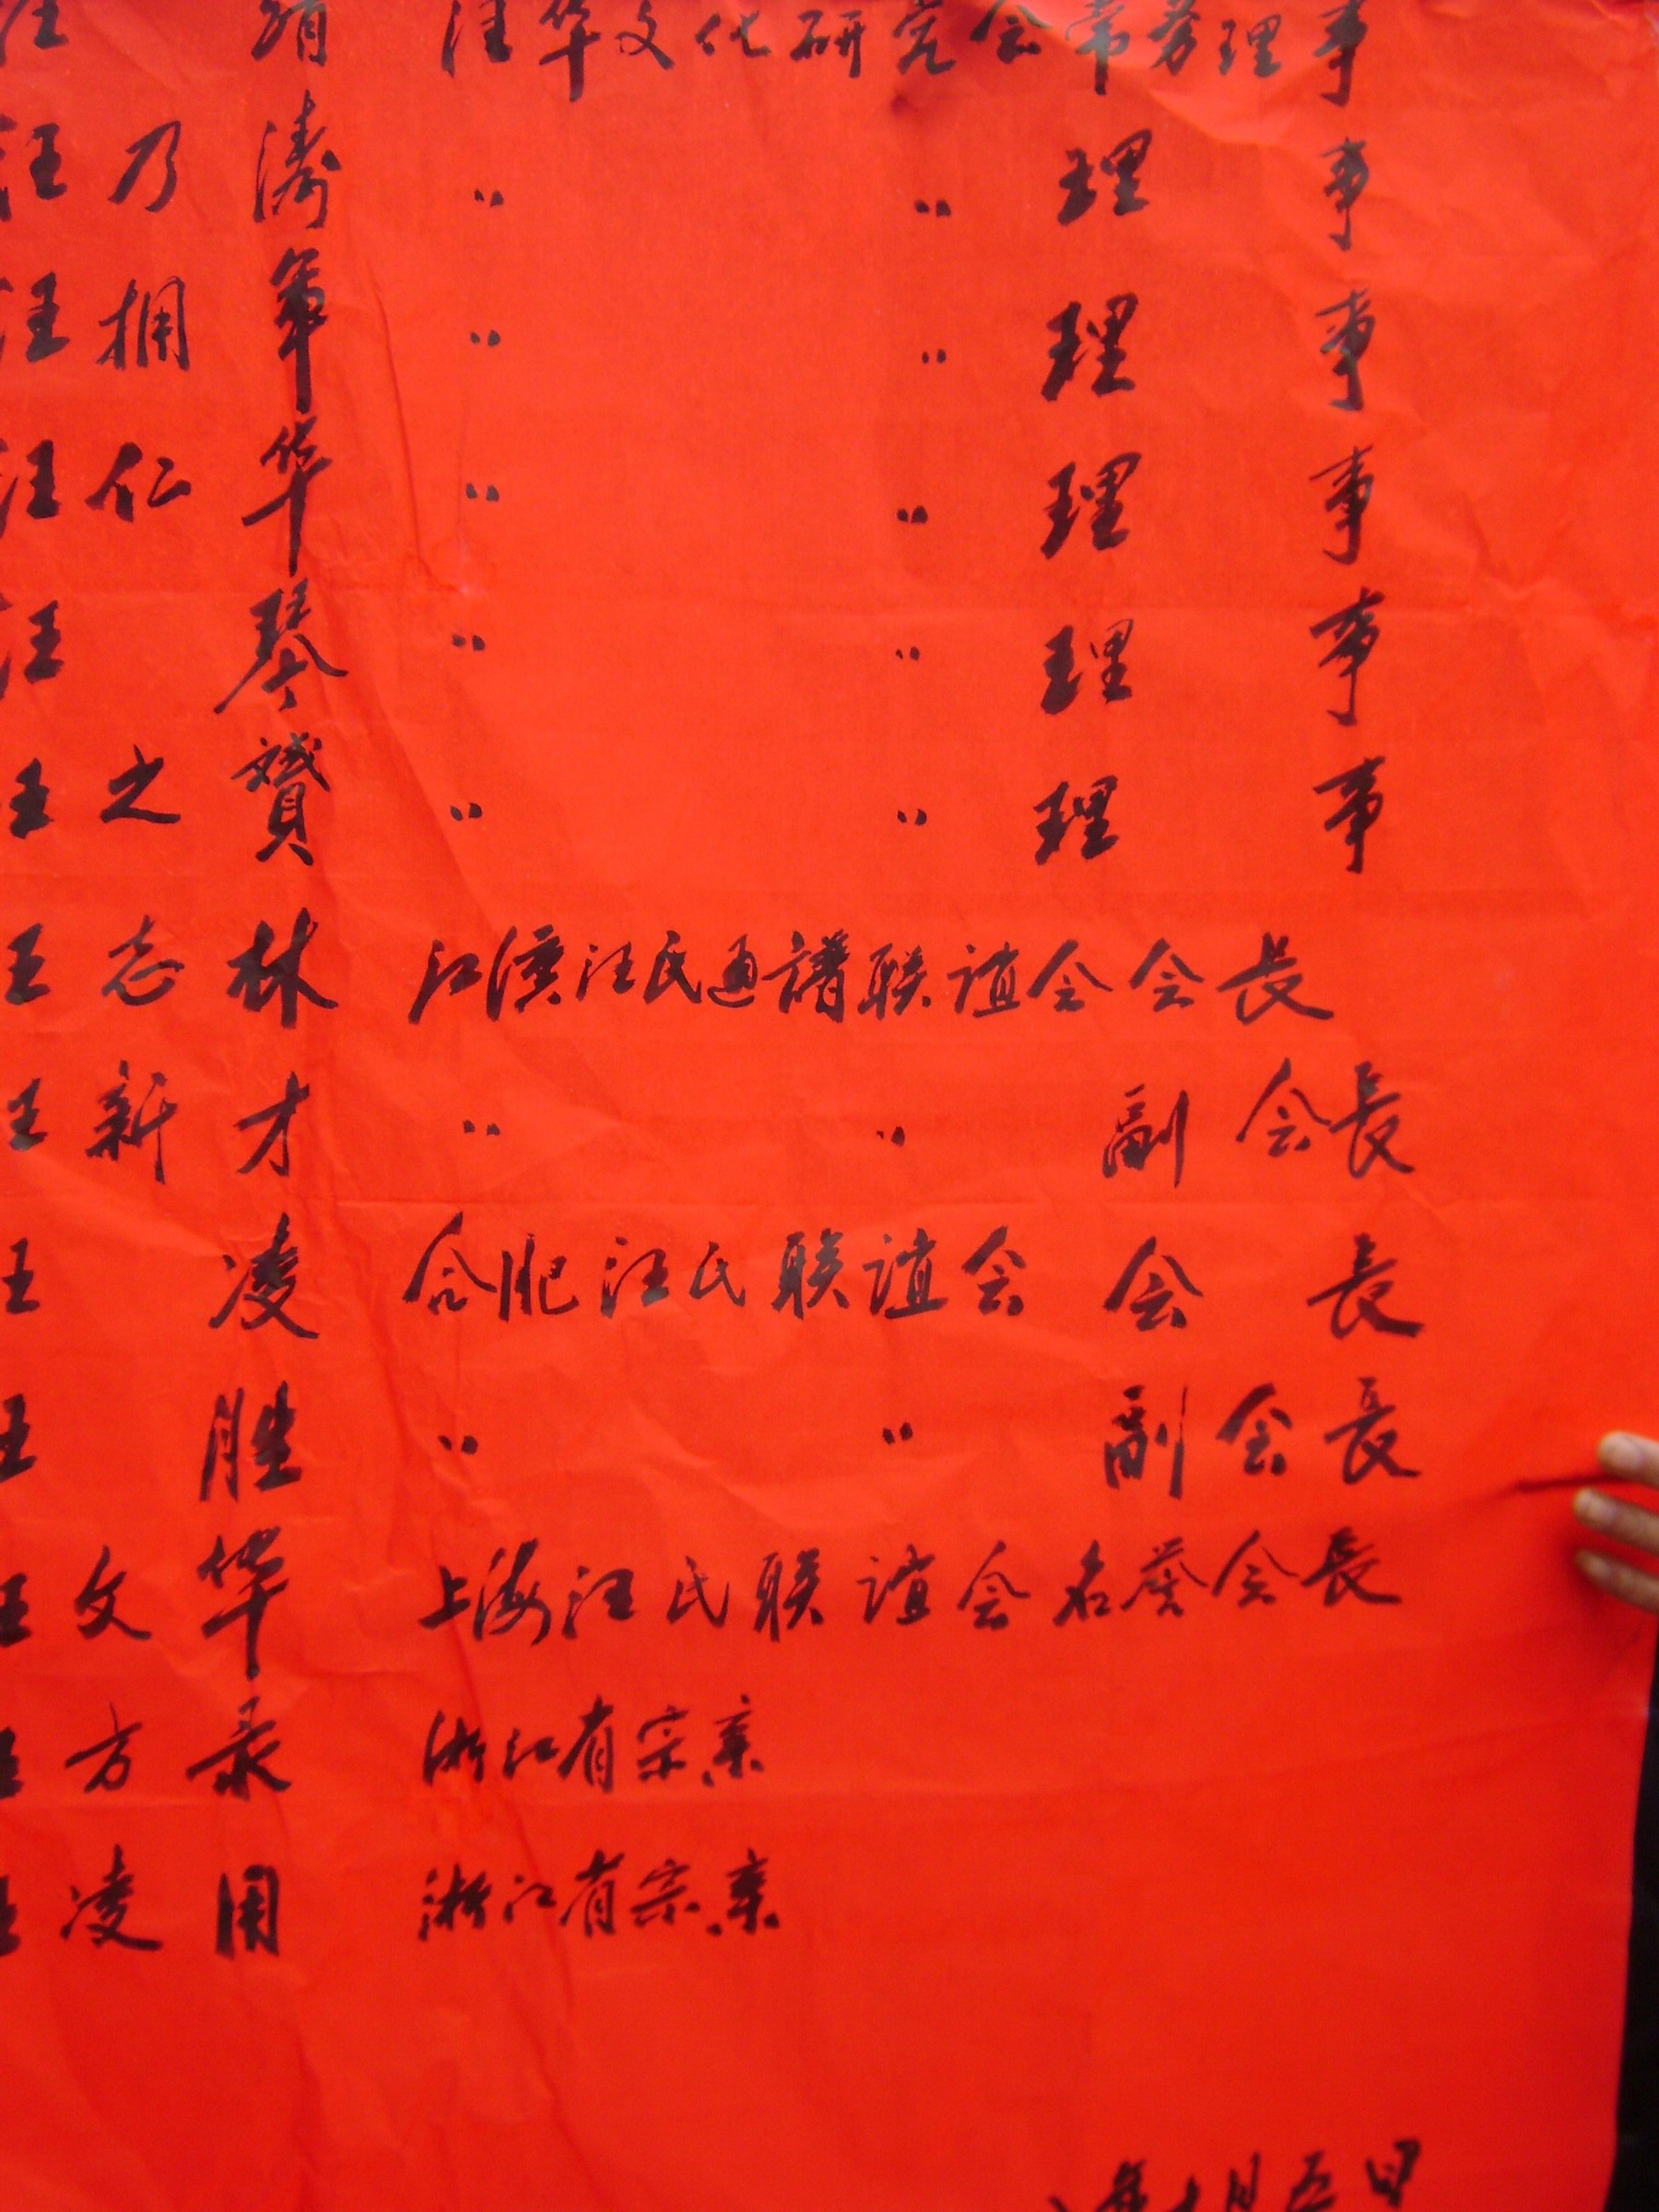 汪 靖 汪华文化研究会常务理事
汪乃涛 〃 〃 理事
汪拥军 〃 〃 理事
汪仁华 〃 〃 理事
汪 琴 〃 〃 理事
汪之赟 〃 〃 理事
汪志林 江淮汪氏通谱联谊会会长
汪新才 〃 〃 副会长
汪 凌 合肥汪氏联谊会会長
汪 胜 〃 〃 副会長
汪文华 上海汪氏联谊会名誉会長
汪方录 浙江省宗亲
汪凌用 浙江省宗亲
年十月五日